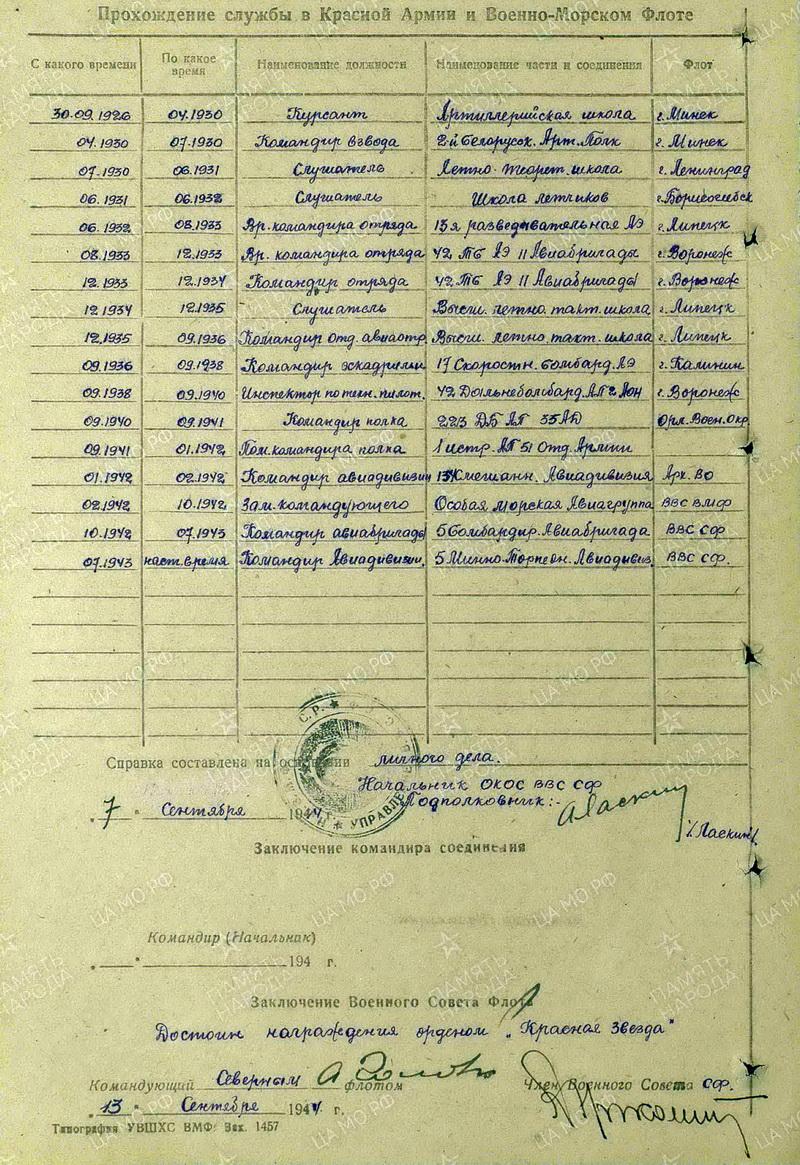 Прохождение службы в Красной Армии и Военно-Морском Флоте
С какого времени По какое время Наименование должности Наименование части и соединения Флот
30.09.1926 04.1930 Курсант Артиллерийская школа г. Минск
04.1930 07.1930 Командир взвода 2-й Белорусск. Арт. Полк г. Минск
07.1930 06.1931 Слушатель Летно-теорет. школа г. Ленинград
06.1931 06.1932 Слушатель Школа летчиков г. Борисоглебск
06.1932 08.1933 Вр. командира отряда 13я разведывательная АЭ г. Липецк
08.1933 12.1933 Вр. командира отряда 42 ТБ АЭ 11 Авиабригады г. Воронеж
12.1933 12.1934 Командир отряда 42 ТБ АЭ 11 Авиабригады г. Воронеж
12.1934 12.1935 Слушатель Высш. летно. такт. школа г. Липецк
12.1935 09.1936 Командир отд. авиаотр. Высш. летно. такт. школа г. Липецк
09.1936 09.1938 Командир эскадрильи 17 Скоростн. бомбард. АЭ г. Калинин
09.1938 09.1940 Инспектор по техн. пилот. 42 Дальнебомбард. АП 2 Аон г. Воронеж
09.1940 09.1941 Командир полка 223 ДБ АП 35 АД Орл. Воен. Окр.
09.1941 01.1942 Пом. командира полка 1 истр. АП 51 Отд. Армии
01.1942 02.1942 Командир авиадивизии Смешанн. Авиадивизия Арх. Во
02.1942 10.1942 Зам. командующего Особая морская Авиагруппа ВВС ВМФ
10.1942 07.1943 Командир авиабригады 5 Бомбардир. Авиабригада ВВС СФ
07.1943 наст. время Командир Авиадивизии. 5 Минно-Торпедн. Авиадивиз. ВВС СФ.
Справка составлена на основании личного дела.
Начальник ОКОС ВВС СФ
Подполковник:-
"7" Сентября 1944 г.
УПРАВЛЕ
/Ласкин/
Заключение командира соединения
Командир (Начальник)
" " 194 г.
Заключение Военного Совета Флота
Достоин награждения орденом „Красная Звезда"
Командующий Северным флотом Член Военного Совета СФ.
"13" Сентября 1944 г.
Типография УВШХС ВМФ. Зак. 1457
ПАМЯТЬ НАРОДА
ЦА МО.РФ